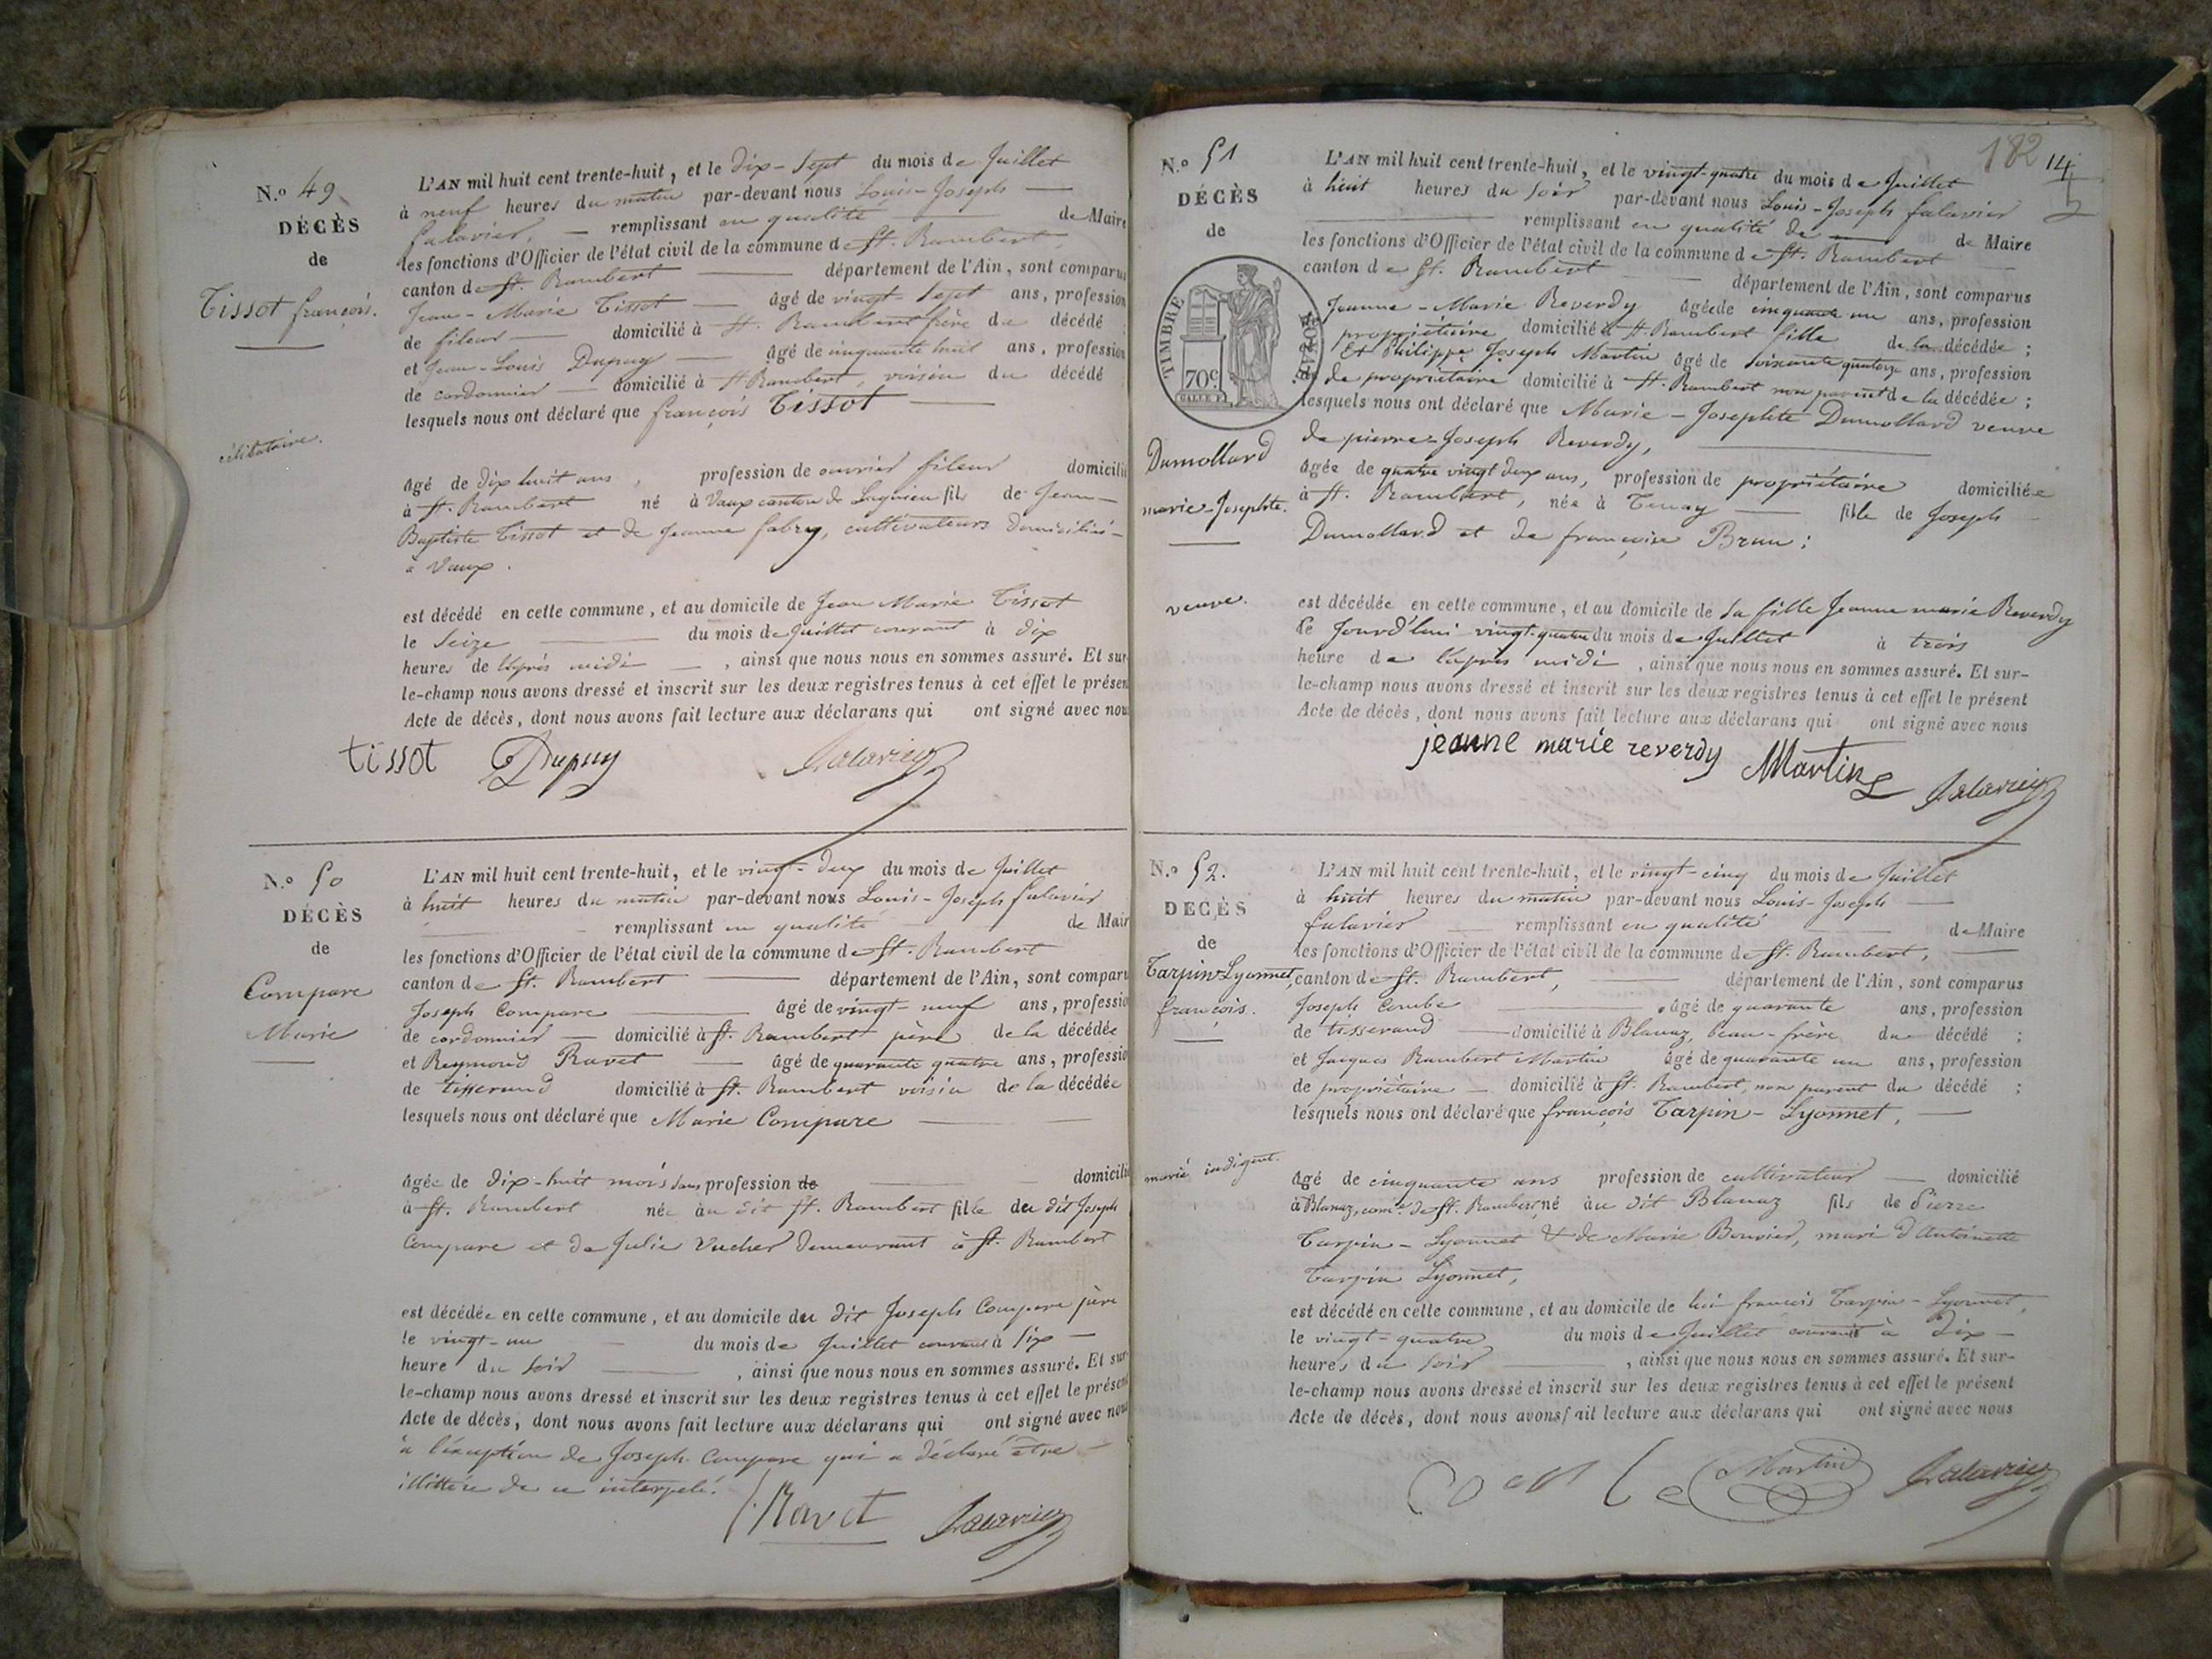 N.º 49
DÉCÈS
de
Tissot françois.
célibataire.
L'AN mil huit cent trente-huit, et le dix-sept du mois de Juillet
à neuf heures du matin par-devant nous Louis-Joseph
falavier, remplissant en qualité de Maire
les fonctions d'Officier de l'état civil de la commune de St. Rambert,
canton de St. Rambert département de l'Ain, sont comparus
Jean-Marie Tissot âgé de vingt-sept ans, profession
de fileur domicilié à St. Rambert frère du décédé ;
et Jean-Louis Dupuy âgé de cinquante huit ans, profession
de cordonnier domicilié à St Rambert, voisin du décédé
lesquels nous ont déclaré que françois Tissot
âgé de dix huit ans, profession de ouvrier fileur domicilié
à St. Rambert né à Vaux canton de Lagnieu fils de Jean-
Baptiste Tissot et de Jeanne fabry, cultivateurs domiciliés
à Vaux.
est décédé en cette commune, et au domicile de Jean Marie Tissot
le seize du mois de Juillet courant à dix
heures de l'après midi, ainsi que nous nous en sommes assuré. Et sur-
le-champ nous avons dressé et inscrit sur les deux registres tenus à cet effet le présen
Acte de décès, dont nous avons fait lecture aux déclarans qui ont signé avec nou
tissot Dupuy falavier
N.º 50
DÉCÈS
de
Compare
Marie
L'AN mil huit cent trente-huit, et le vingt-deux du mois de Juillet
à huit heures du matin par-devant nous Louis-Joseph falavier
remplissant en qualité de Mair
les fonctions d'Officier de l'état civil de la commune de St. Rambert
canton de St. Rambert département de l'Ain, sont comparu
Joseph Compare âgé de vingt-neuf ans, professio
de cordonnier domicilié à St. Rambert père de la décédée
et Reymond Ravet âgé de quarante quatre ans, professio
de tisserand domicilié à St. Rambert voisin de la décédée
lesquels nous ont déclaré que Marie Compare
âgée de dix-huit mois sans profession de domicili
à St. Rambert née au dit St. Rambert fille du dit Joseph
Compare et de Julie Vucher demeurant à St. Rambert
est décédée en cette commune, et au domicile du dit Joseph Compare père
le vingt-un du mois de Juillet courant à six
heure du soir, ainsi que nous nous en sommes assuré. Et sur-
le-champ nous avons dressé et inscrit sur les deux registres tenus à cet effet le présen
Acte de décès, dont nous avons fait lecture aux déclarans qui ont signé avec nou
à l'éxception de Joseph Compare qui a déclaré être
illittéré de ce interpelé.
Ravet falavier
182 14
N.º 51
DÉCÈS
de
TIMBRE ROYAL
70 c.
Dumollard
marie-Josephte.
veuve.
L'AN mil huit cent trente-huit, et le vingt-quatre du mois de Juillet
à huit heures du soir par-devant nous Louis-Joseph falavier
remplissant en qualité de de Maire
les fonctions d'Officier de l'état civil de la commune de St. Rambert
canton de St. Rambert département de l'Ain, sont comparus
Jeanne-Marie Reverdy âgée de cinquante un ans, profession
propriétaire domicilié à St. Rambert fille de la décédée ;
Et Philippe Joseph Martin âgé de soixante quatorze ans, profession
de propriétaire domicilié à St. Rambert non parent de la décédée ;
lesquels nous ont déclaré que Marie-Josephte Dumollard veuve
de pierre-Joseph Reverdy,
âgée de quatre vingt deux ans, profession de propriétaire domiciliée
à St. Rambert, née à Tenay fille de Joseph
Dumollard et de françoise Brun ;
est décédée en cette commune, et au domicile de sa fille Jeanne marie Reverdy
le Jourd'hui vingt-quatre du mois de Juillet à trois
heure de l'après midi, ainsi que nous nous en sommes assuré. Et sur-
le-champ nous avons dressé et inscrit sur les deux registres tenus à cet effet le présent
Acte de décès, dont nous avons fait lecture aux déclarans qui ont signé avec nous
jeanne marie reverdy Martin falavier
N.º 52.
DÉCÈS
de
Tarpin-Lyonnet,
françois.
marié indigent.
L'AN mil huit cent trente-huit, et le vingt-cinq du mois de Juillet
à huit heures du matin par-devant nous Louis-Joseph
falavier remplissant en qualité de Maire
les fonctions d'Officier de l'état civil de la commune de St. Rambert,
canton de St. Rambert, département de l'Ain, sont comparus
Joseph Combe âgé de quarante ans, profession
de tisserand domicilié à Blanaz, beau-frère du décédé ;
et Jacques Rambert Martin âgé de quarante un ans, profession
de propriétaire domicilié à St. Rambert, non parent du décédé ;
lesquels nous ont déclaré que françois Tarpin-Lyonnet,
âgé de cinquante ans profession de cultivateur domicilié
à Blanaz, com.e de St. Rambert né au dit Blanaz fils de Pierre
Tarpin-Lyonnet & de Marie Bouvier, mari d'Antoinette
Tarpin Lyonnet,
est décédé en cette commune, et au domicile de lui françois Tarpin-Lyonnet,
le vingt-quatre du mois de Juillet courant à dix
heures du soir, ainsi que nous nous en sommes assuré. Et sur-
le-champ nous avons dressé et inscrit sur les deux registres tenus à cet effet le présent
Acte de décès, dont nous avons fait lecture aux déclarans qui ont signé avec nous
Martin falavier